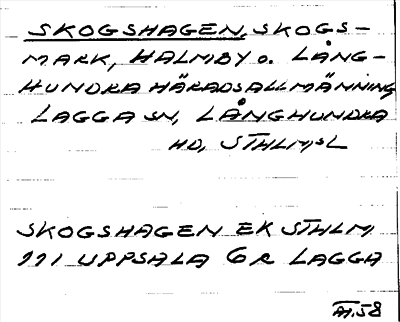 SKOGSHAGEN, SKOGS-
MARK, HALMBY o. LÅNG-
HUNDRA HÄRADSALLMÄNNING
LAGGA SN, LÅNGHUNDRA
HD, STHLMSL
SKOGSHAGEN EK STHLM
111 UPPSALA 6R LAGGA
58